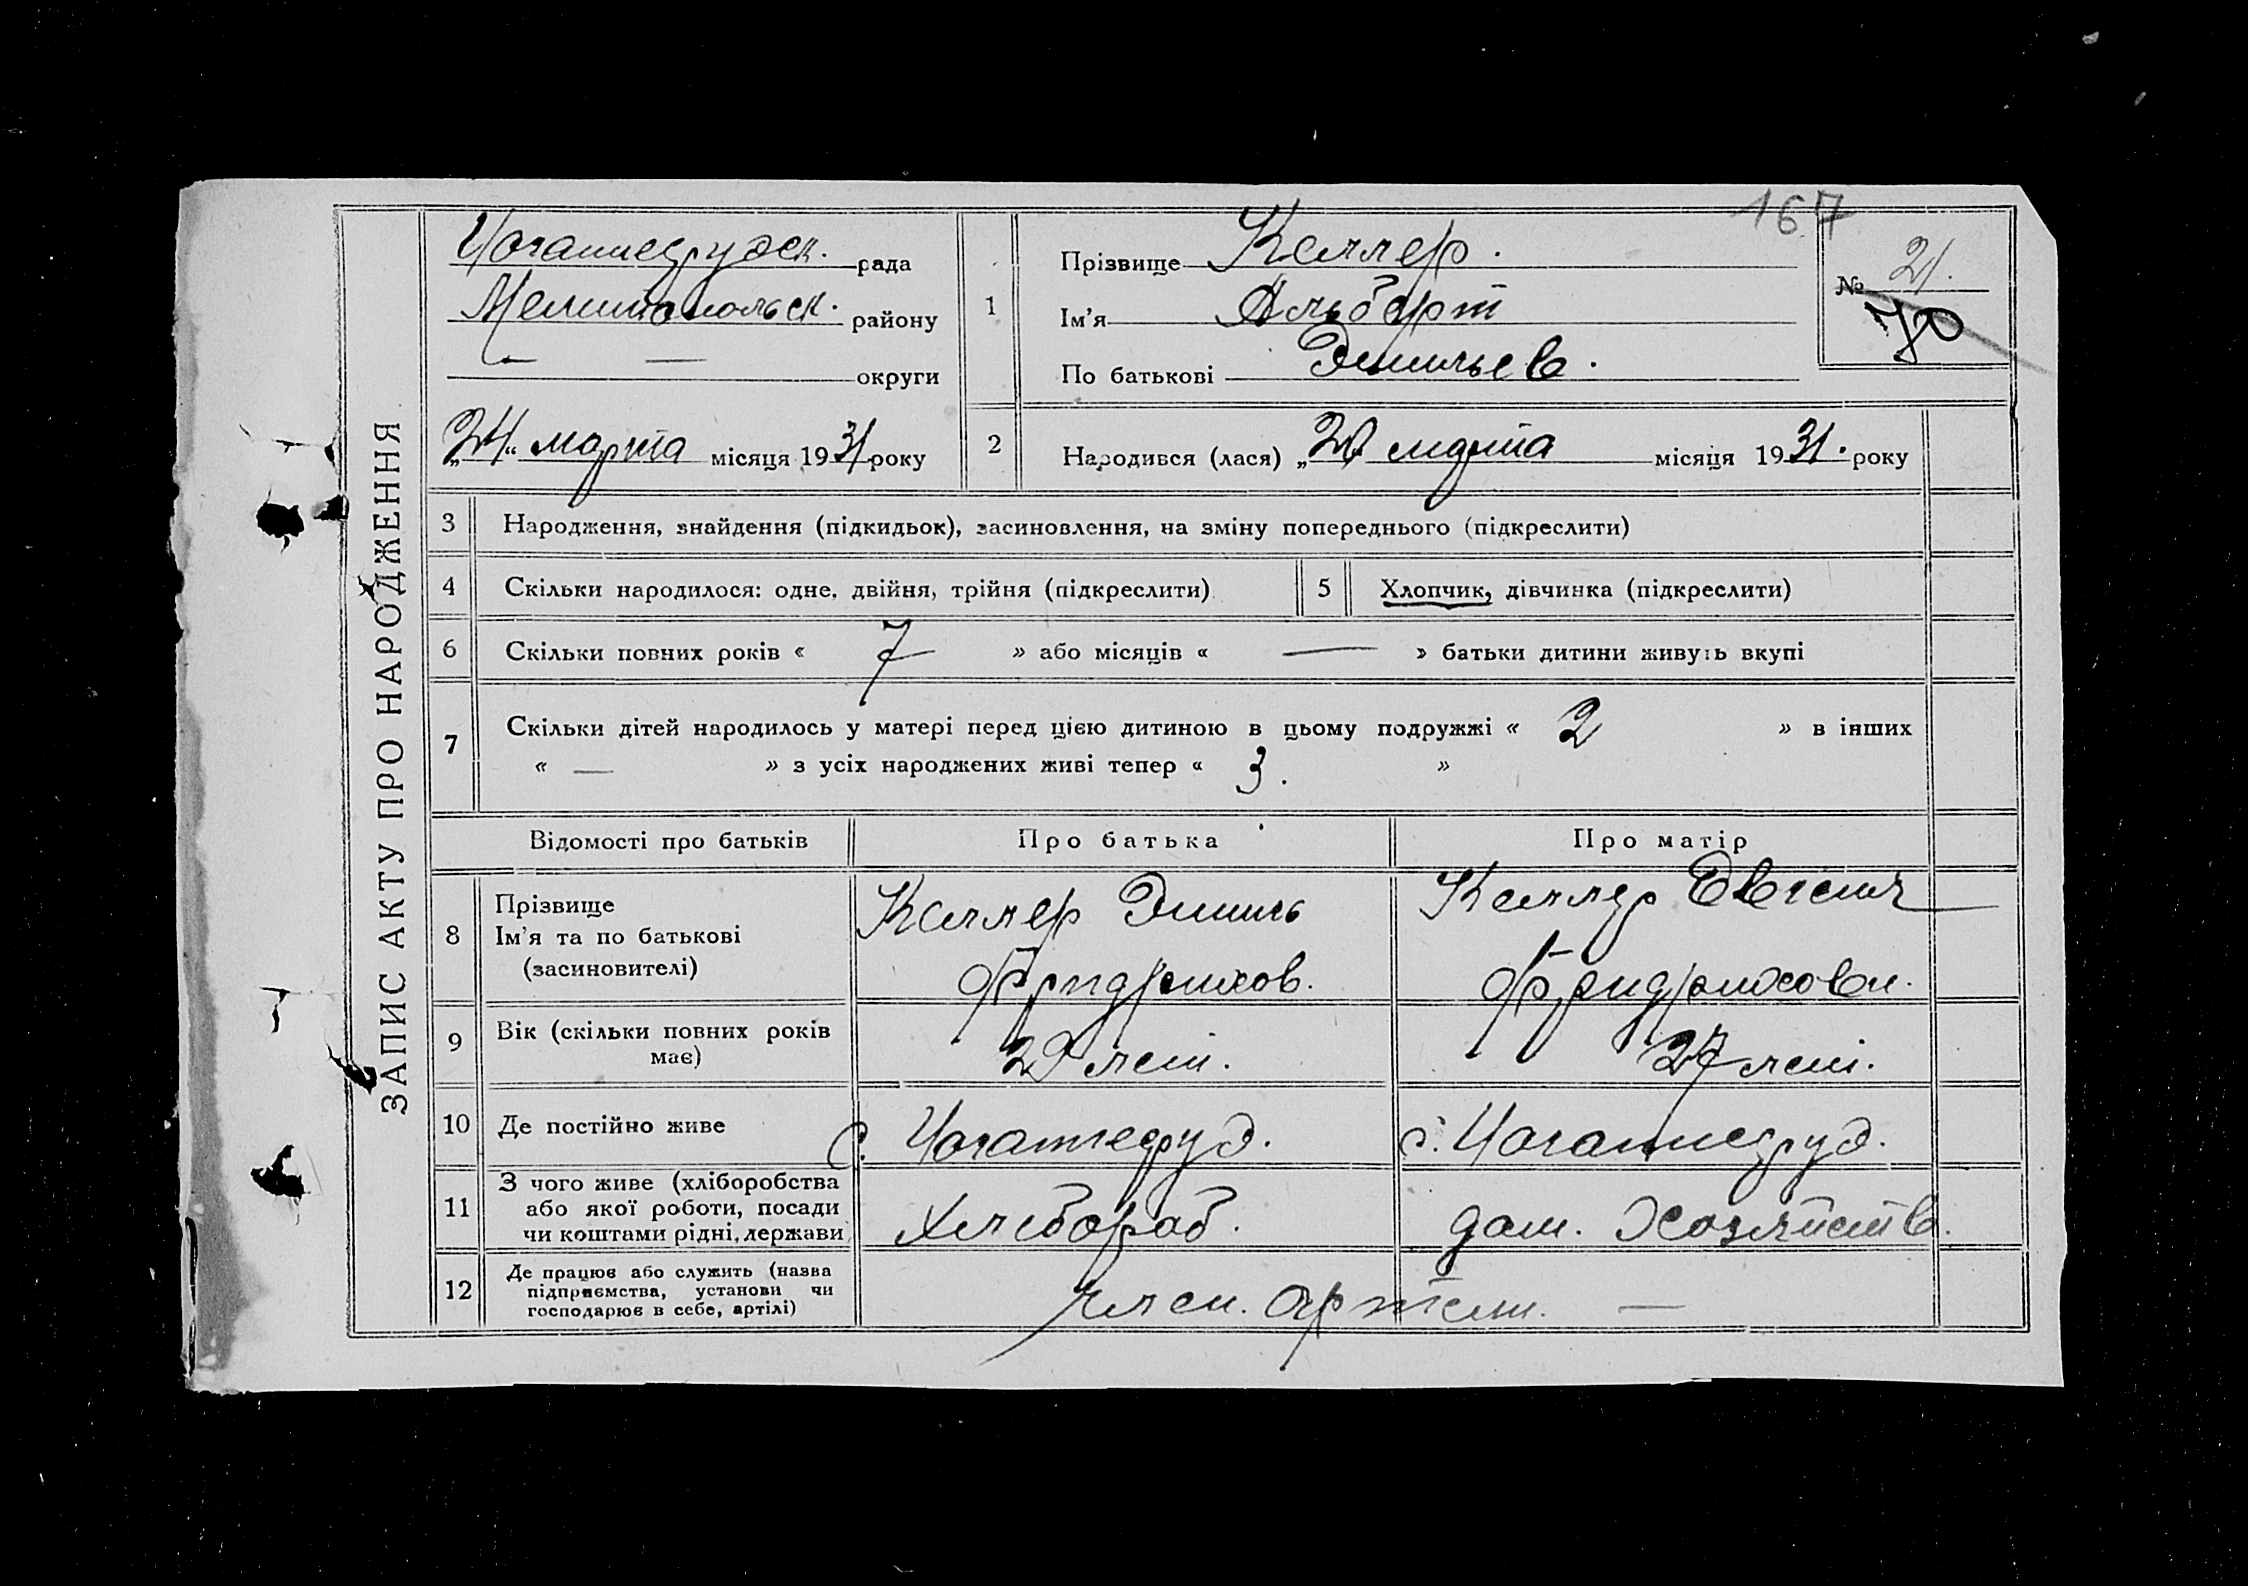 167
ЗАПИС АКТУ ПРО НАРОДЖЕННЯ
Иоганнесрудск. рада
Мелитопольск. району
— — округи
„24“ марта місяця 1931 року
1
Прізвище Келлер.
Ім'я Альберт
По батькові Эмильев.
№ 21.
70
2 Народився (лася) „20 марта місяця 1931. року
3 Народження, знайдення (підкидьок), засиновлення, на зміну попереднього (підкреслити)
4 Скільки народилося: одне, двійня, трійня (підкреслити) 5 Хлопчик, дівчинка (підкреслити)
6 Скільки повних років « 7 » або місяців « — » батьки дитини живуть вкупі
7 Скільки дітей народилось у матері перед цією дитиною в цьому подружжі « 2 » в інших
« — » з усіх народжених живі тепер « 3. »
Відомості про батьків Про батька Про матір
8 Прізвище
Ім'я та по батькові
(засиновителі)
Келлер Эмиль
Фридрихов.
Келлер
Фридриховн.
9 Вік (скільки повних років
має)
29 лет. 27 лет.
10 Де постійно живе с. Иоганнесруд. с. Иоганнесруд.
11 З чого живе (хліборобства
або якої роботи, посади
чи коштами рідні, держави
Хлебороб. дом. Хозяйств.
12 Де працює або служить (назва
підприємства, установи чи
господарює в себе, артілі)
член. артели. —